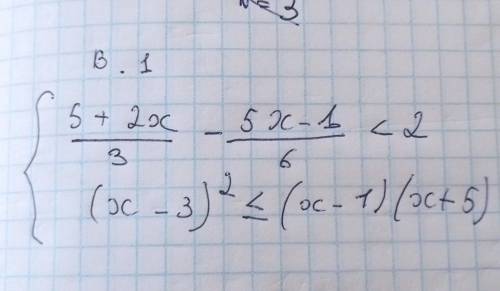 N=3
В. 1
{ (5 + 2x)/3 - (5x - 1)/6 < 2
(x - 3)² ≤ (x - 1)(x + 5)